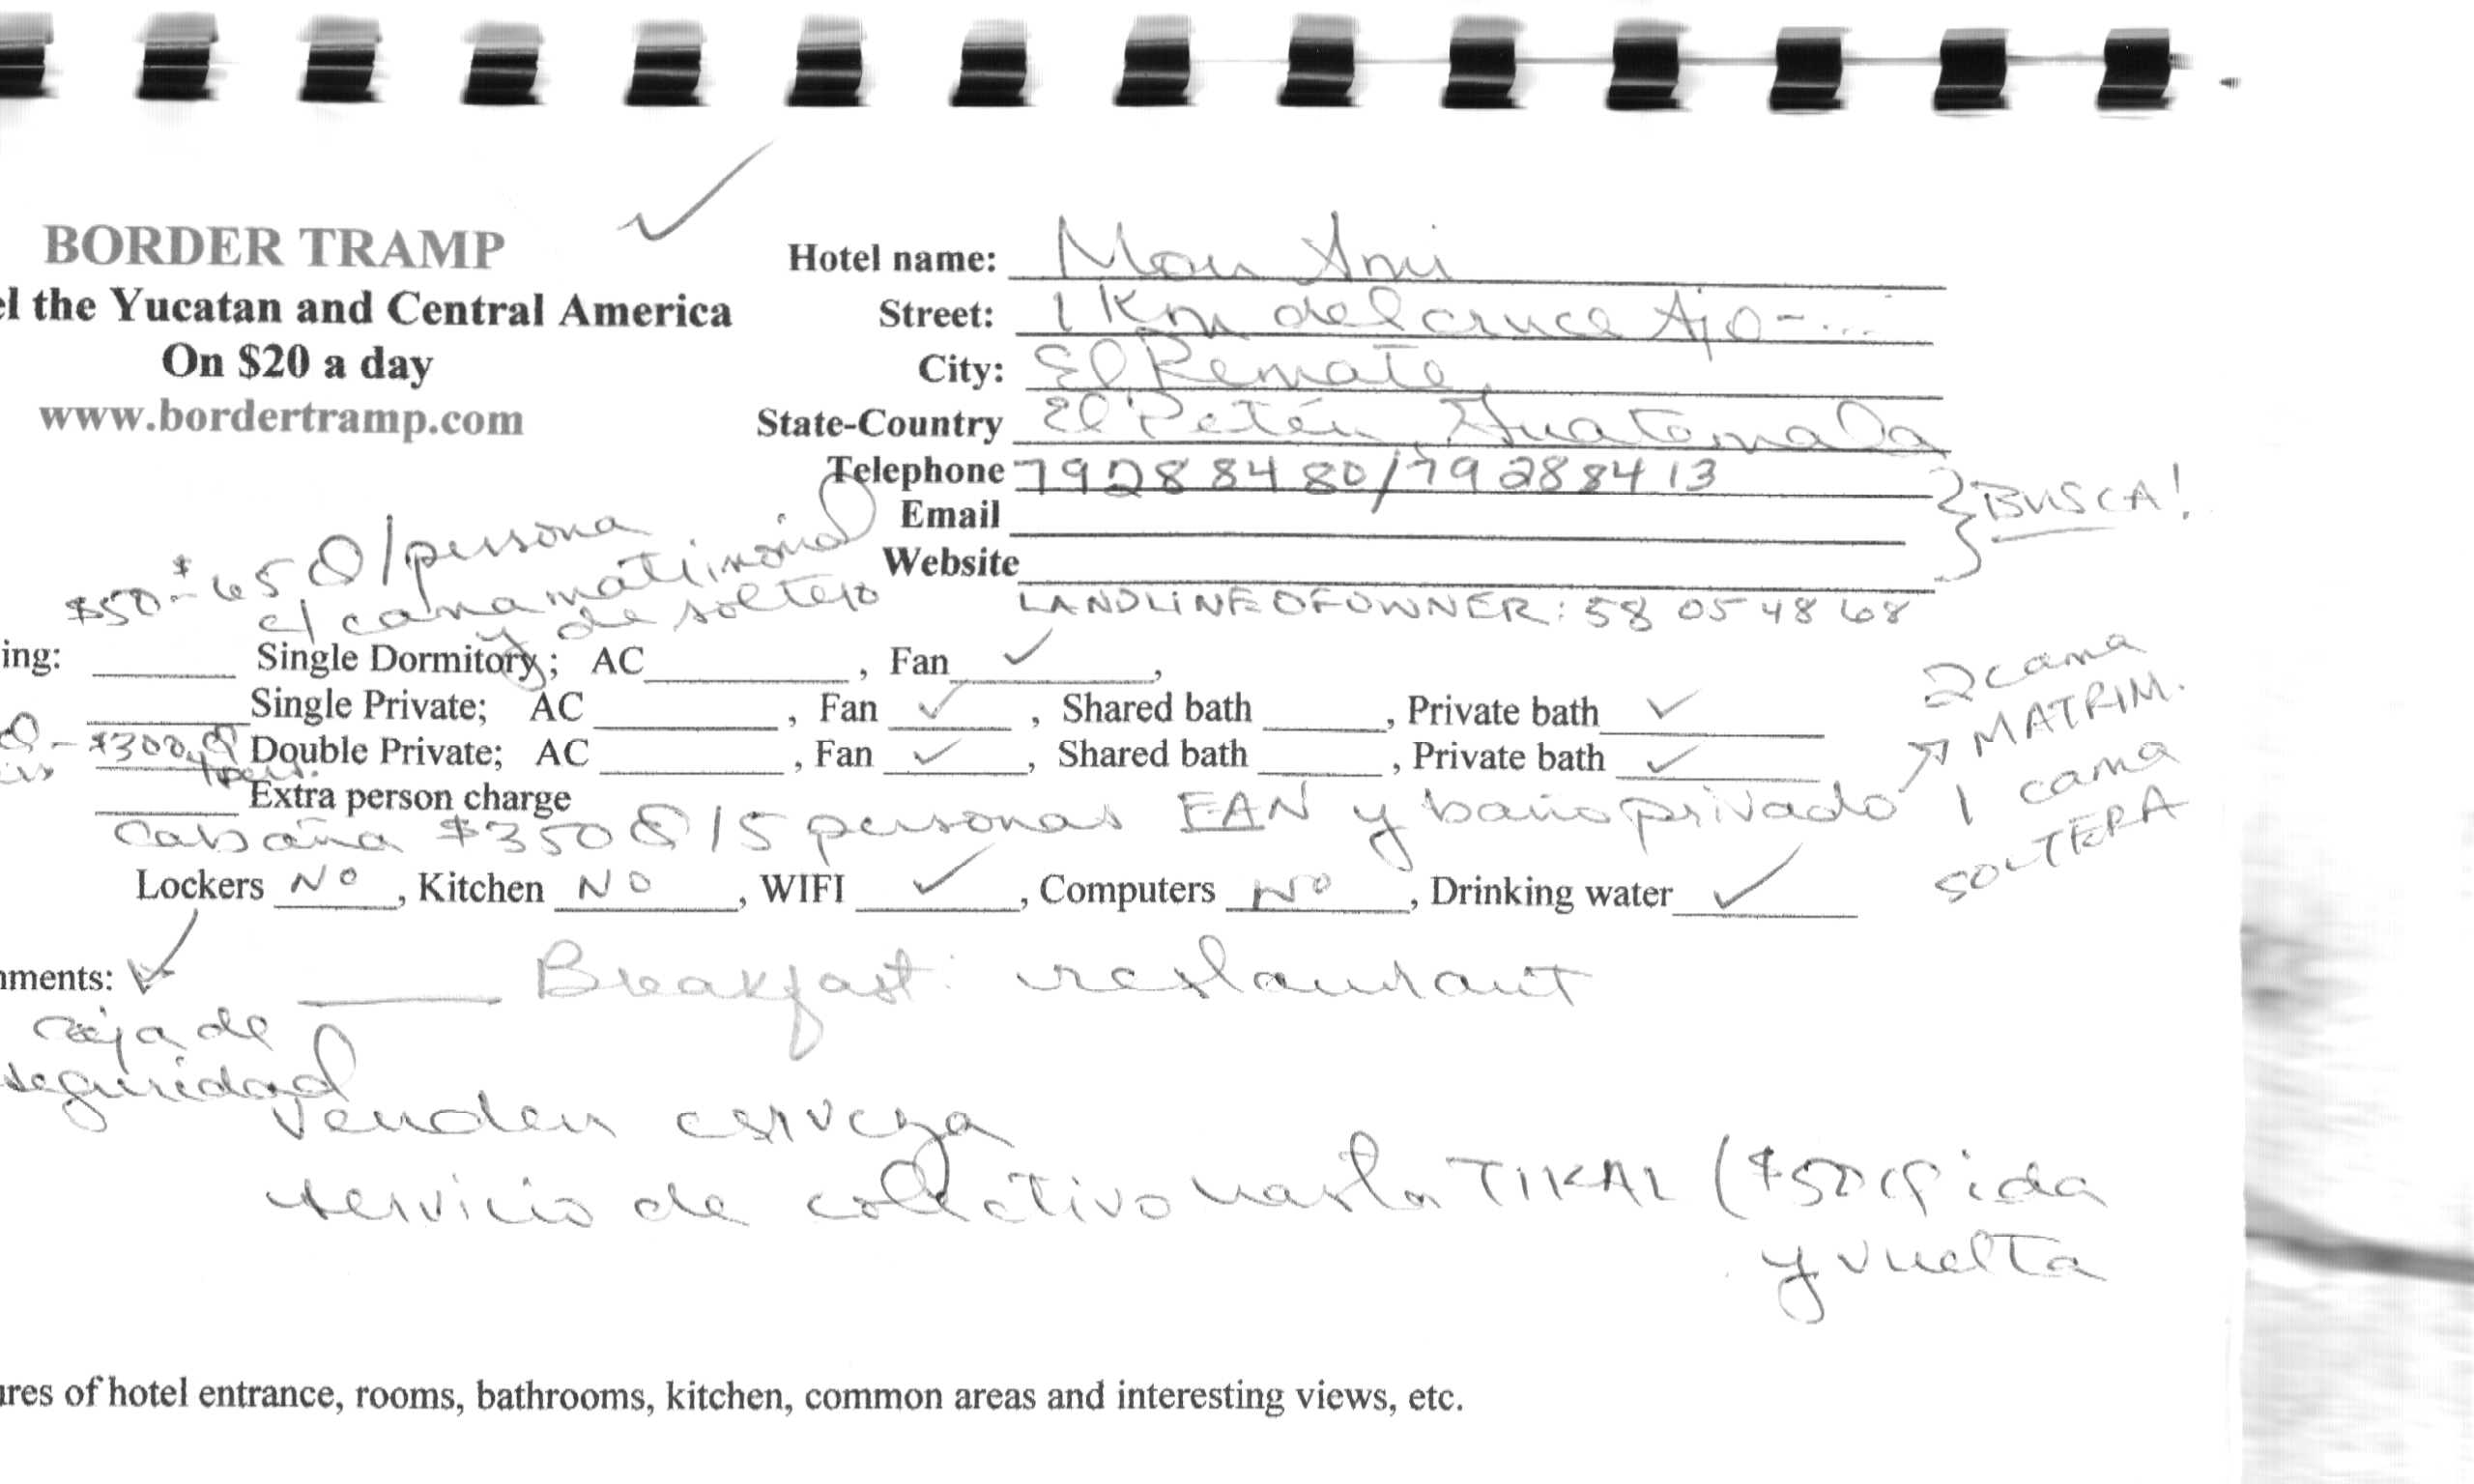 BORDER TRAMP
el the Yucatan and Central America
On $20 a day
www.bordertramp.com
Hotel name: Mon Ami
Street: 1 Km del cruce
City: El Remate,
State-Country El Petén, Guatemala
Telephone 79288480/79288413
Email
Website
} BUSCA!
LANDLINE OF OWNER: 58 05 48 68
$50 - $65 Q/persona
c/ cama matrimonial
y de soltero
ing: Single Dormitory; AC , Fan ✓ ,
Single Private; AC , Fan ✓ , Shared bath , Private bath ✓
Q - $300 Q Double Private; AC , Fan ✓ , Shared bath , Private bath ✓
Extra person charge
Cabaña $350 Q / 5 personas FAN y baño privado
2 cama
MATRIM.
1 cama
SOLTERA
Lockers NO , Kitchen NO , WIFI ✓ , Computers NO , Drinking water ✓
mments: ✓ Breakfast: restaurant
caja de
seguridad
Venden cerveza
servicio de colectivo hasta TIKAL ($50 Q ida
y vuelta
ures of hotel entrance, rooms, bathrooms, kitchen, common areas and interesting views, etc.